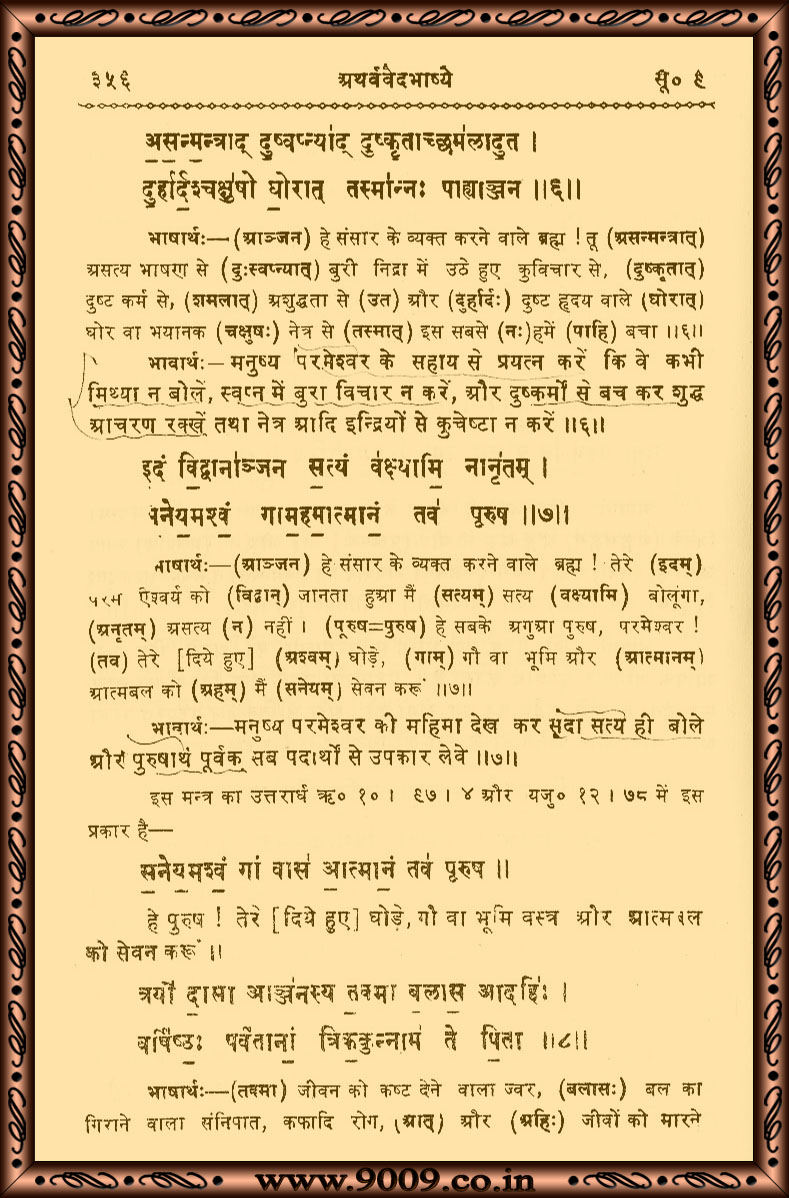 ३५६ अथर्ववेदभाष्ये सू० ९
असन्मन्त्राद् दुष्वप्न्याद् दुष्कृताच्छमलादुत ।
दुर्हार्दश्चक्षुषो घोरात् तस्मान्नः पाह्याञ्जन ॥६॥
भाषार्थः—(आञ्जन) हे संसार के व्यक्त करने वाले ब्रह्म ! तू (असन्मन्त्रात्)
असत्य भाषण से (दुःस्वप्न्यात्) बुरी निद्रा में उठे हुए कुविचार से, (दुष्कृतात्)
दुष्ट कर्म से, (शमलात्) अशुद्धता से (उत) और (दुर्हार्दः) दुष्ट हृदय वाले (घोरात्)
घोर वा भयानक (चक्षुषः) नेत्र से (तस्मात्) इस सबसे (नः)हमें (पाहि) बचा ॥६॥
भावार्थः—मनुष्य परमेश्वर के सहाय से प्रयत्न करें कि वे कभी
मिथ्या न बोलें, स्वप्न में बुरा विचार न करें, और दुष्कर्मों से बच कर शुद्ध
आचरण रक्खें तथा नेत्र आदि इन्द्रियों से कुचेष्टा न करें ॥६॥
इदं विद्वानाञ्जन सत्यं वक्ष्यामि नानृतम् ।
सनेयमश्वं गामहमात्मानं तव पूरुष ॥७॥
भाषार्थः—(आञ्जन) हे संसार के व्यक्त करने वाले ब्रह्म ! तेरे (इदम्)
परम ऐश्वर्य को (विद्वान्) जानता हुआ मैं (सत्यम्) सत्य (वक्ष्यामि) बोलूंगा,
(अनृतम्) असत्य (न) नहीं । (पूरुष=पुरुष) हे सबके अगुआ पुरुष, परमेश्वर !
(तव) तेरे [दिये हुए] (अश्वम्) घोड़े, (गाम्) गौ वा भूमि और (आत्मानम्)
आत्मबल को (अहम्) मैं (सनेयम्) सेवन करूं ॥७॥
भावार्थः—मनुष्य परमेश्वर की महिमा देख कर सदा सत्य ही बोले
और पुरुषार्थ पूर्वक सब पदार्थों से उपकार लेवे ॥७॥
इस मन्त्र का उत्तरार्ध ऋ० १० । ९७ । ४ और यजु० १२ । ७८ में इस
प्रकार है—
सनेयमश्वं गां वास आत्मानं तव पूरुष ॥
हे पुरुष ! तेरे [दिये हुए] घोड़े, गौ वा भूमि वस्त्र और आत्मबल
को सेवन करूं ॥
त्रयो दासा आञ्जनस्य तक्मा बलास आदहिः ।
वर्षिष्ठः पर्वतानां त्रिककुन्नाम ते पिता ॥८॥
भाषार्थः—(तक्मा) जीवन को कष्ट देने वाला ज्वर, (बलासः) बल का
गिराने वाला संनिपात, कफादि रोग, (आत्) और (अहिः) जीवों को मारने
www.9009.co.in